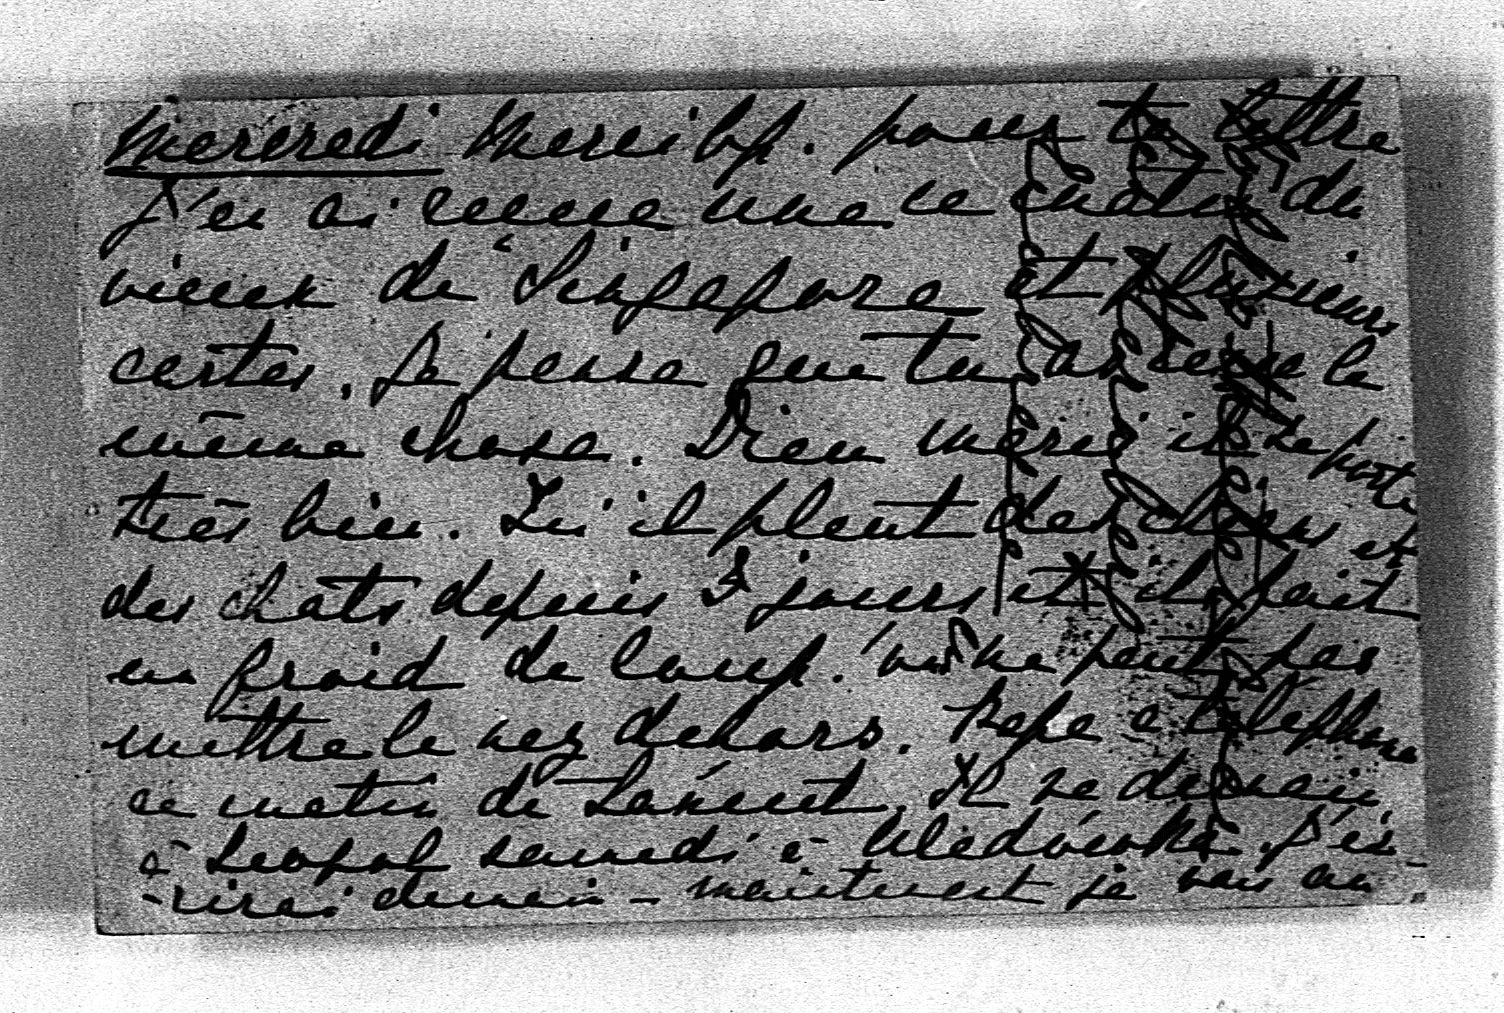 Mercredi Merci bp. pour ta lettre
J'en ai reçue une ce matin du
vieux de "Singapore et plusieurs
cartes. Je pense que tu as reçue la
même chose. Dieu merci il se porte
très bien. Ici il pleut des chiens et
des chats depuis 3 jours et il fait
un froid de loup. on ne peut pas
mettre le nez dehors. Pepe a téléphoné
ce matin de Łańcut. Il va demain
à Leopol samedi à J'éc-
-rirai demain - maintenant je vais au